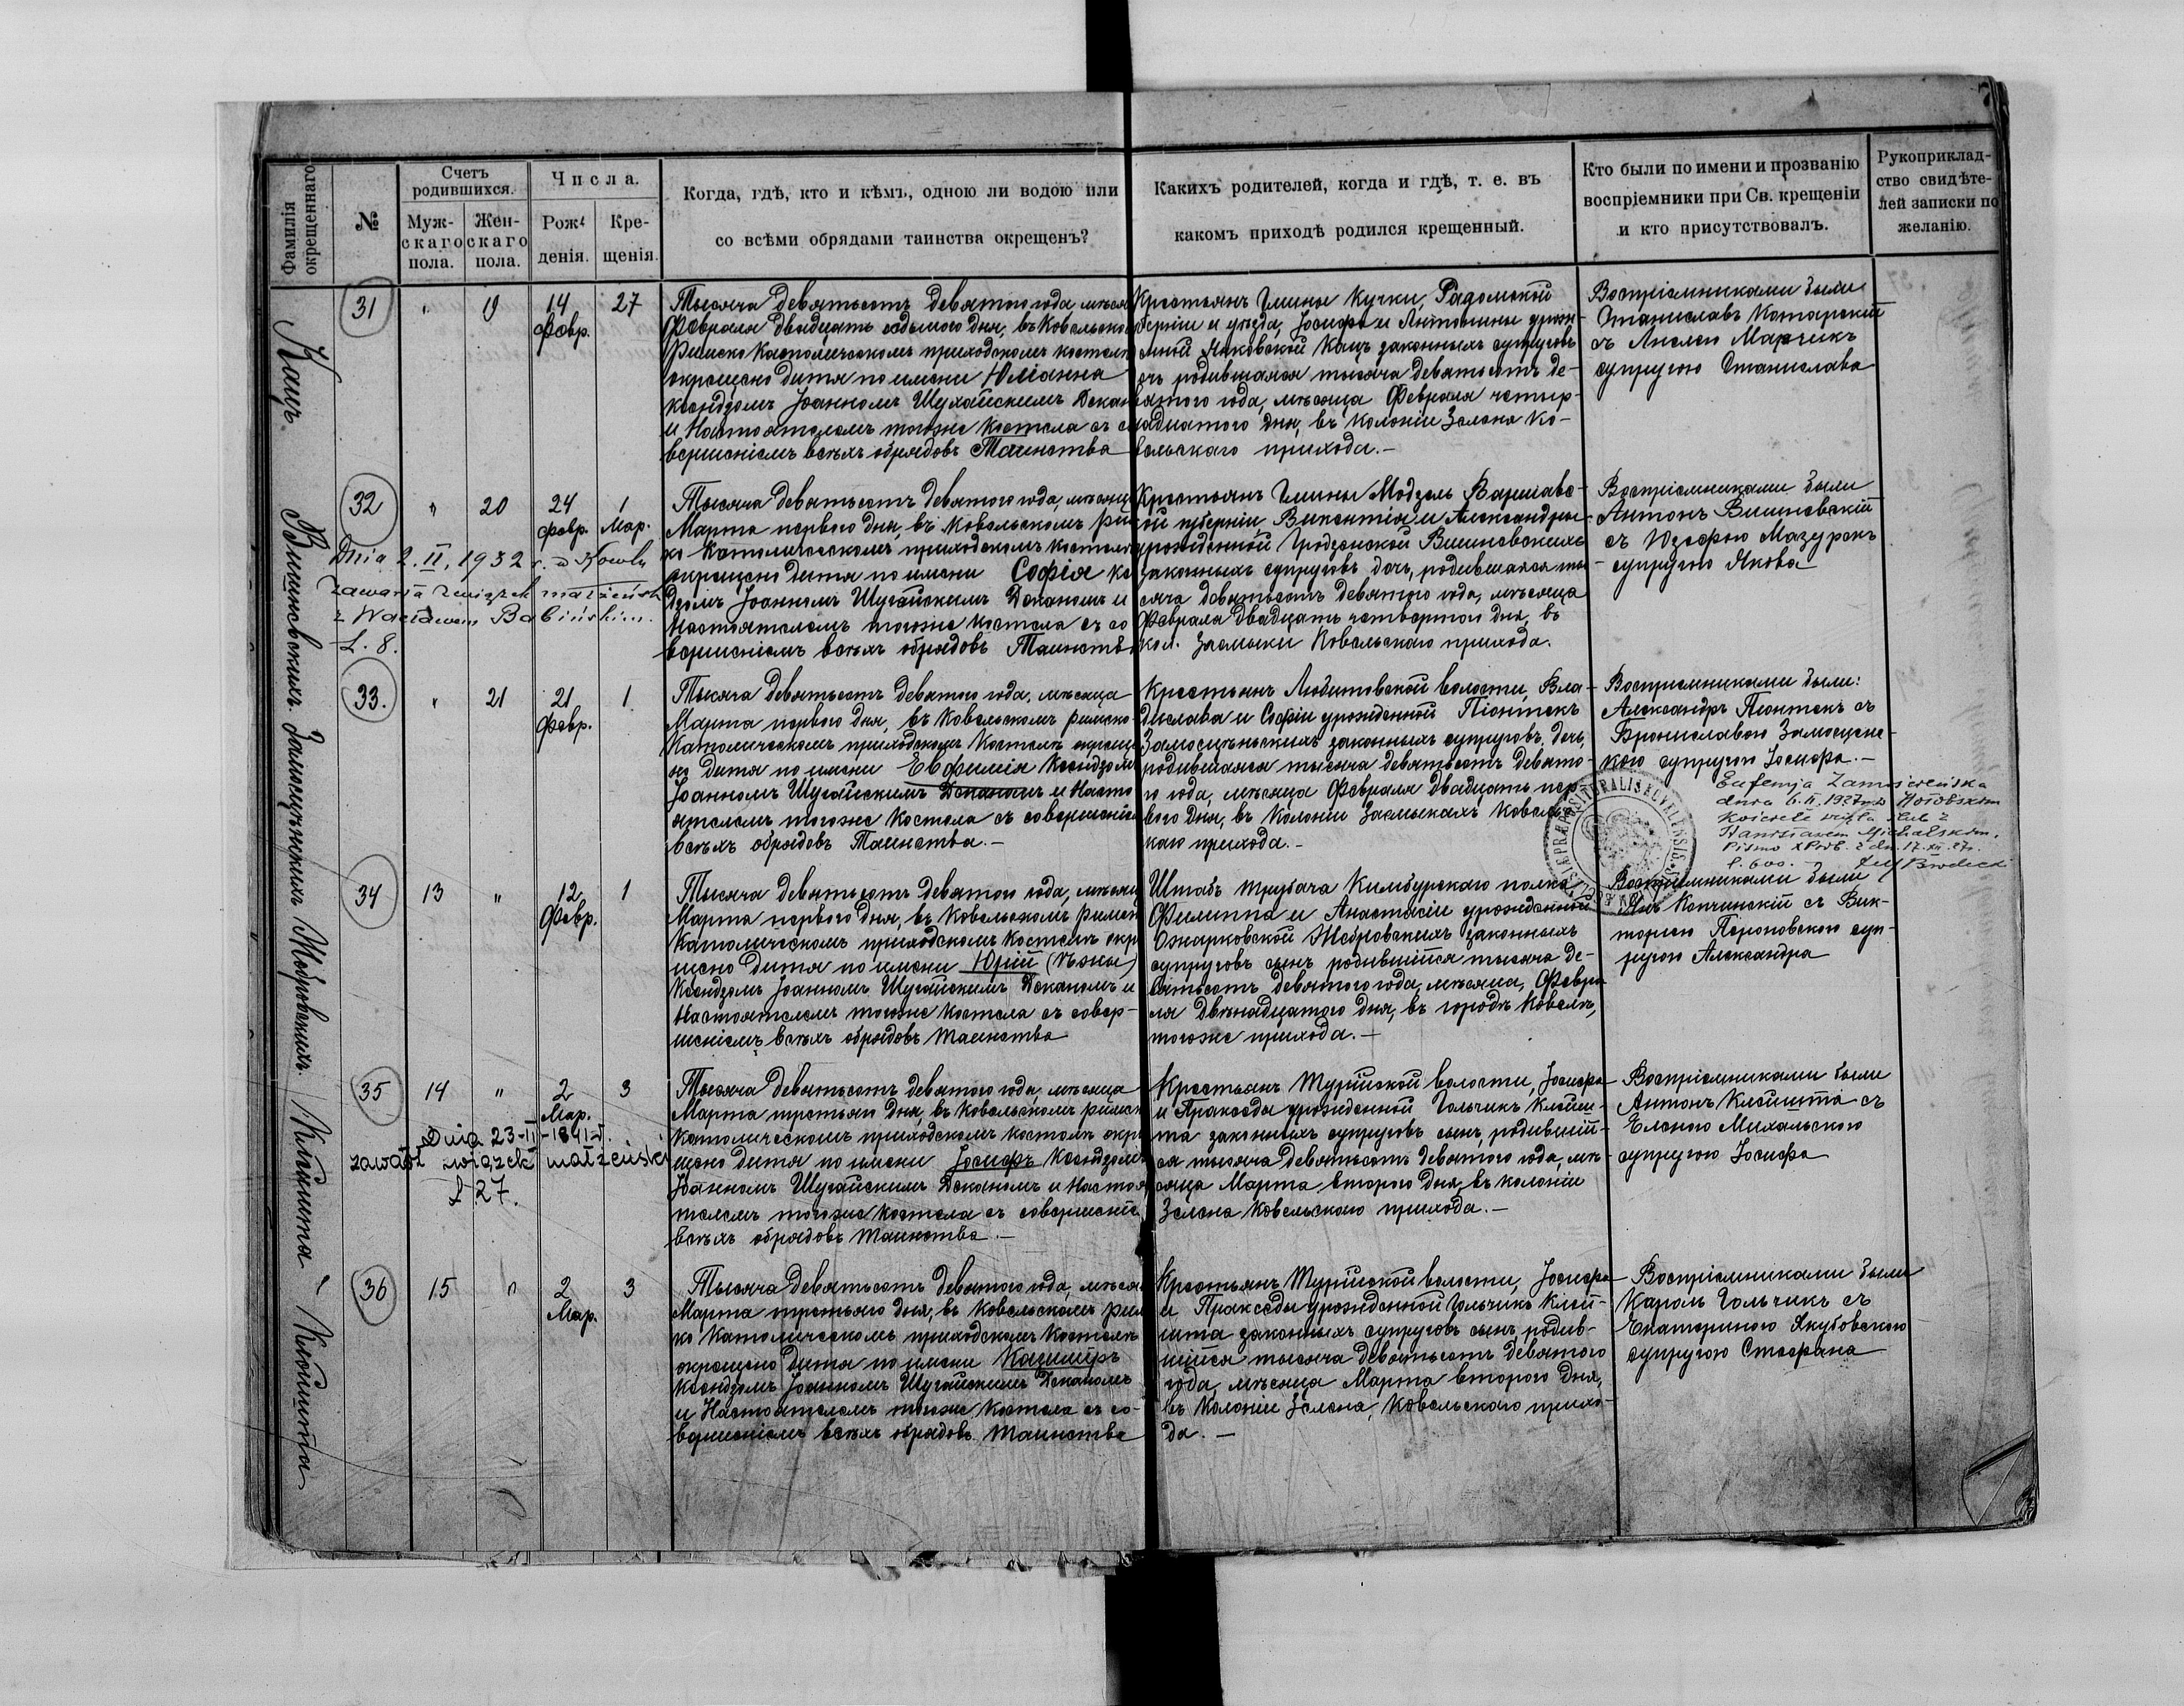 7
Фамилія окрещеннаго
№
Счетъ родившихся.
Мужскаго пола.
Женскаго пола.
Числа.
Рожденія.
Крещенія.
Когда, гдѣ, кто и кѣмъ, одною ли водою или
со всѣми обрядами таинства окрещенъ?
Какихъ родителей, когда и гдѣ, т. е. въ
какомъ приходѣ родился крещенный.
Кто были по имени и прозванію
воспріемники при Св. крещеніи
и кто присутствовалъ.
Рукоприклад-
ство свидѣте-
лей записки по
желанію.
Кацъ
31
"
19
14 Февр.
27
Тысяча девятьсотъ девятого года, мѣсяца
Февраля двадцать седьмого дня, въ Ковельско
Римско Католическомъ приходскомъ костелѣ
окрещено дитя по имени Юліанна
Ксендзомъ Іоанномъ Шугайскимъ Декан
и Настоятелемъ тогоже Костела съ со
вершеніемъ всѣхъ обрядовъ Таинства
Крестьянъ Гмины Кучки, Радомской
берніи и уѣзда, Іосифа и Антонины урож-
Яковской Кацъ законныхъ супруговъ
очь родившаяся тысяча девятьсотъ де-
вятого года, мѣсяца Февраля четыр-
надцатого дня, въ Колоніи Зелена Ко-
вельскаго прихода.-
Воспріемниками были
Станиславъ Котарскій
съ Анелею Марчикъ
супругою Станислава
Вишнѣвскихъ
32
"
20
24 февр.
1 Мар.
Dnia 2. II. 1932 r. w Kowlu
zawarła związek małżeńsk
z Wacławem Babińskim.
L. 8.
Тысяча девятьсотъ девятого года, мѣсяца
Марта первого дня, въ Ковельскомъ рим
ко Католическомъ приходскомъ Костелѣ
окрещено дитя по имени Софія кс
дзомъ Іоанномъ Шугайскимъ Деканомъ и
Настоятелемъ тогоже костела съ со
вершеніемъ всѣхъ обрядовъ Таинств
Крестьянъ Гмины Модзель Варшавс-
ой губерніи Викентія и Александры
урожденной Гродзенской Вишневскихъ
законныхъ супруговъ дочь, родившаяся ты
сяча девятьсотъ девятого года, мѣсяца
Февраля двадцать четвертого дня, въ
кол. Засмыки Ковельскаго прихода.
Воспріемниками были
Антонъ Вишневскій
съ Юзефою Мазурекъ
супругою Якова
Замосцѣнскихъ
33.
"
21
21 Февр.
1
Тысяча девятьсотъ девятого года, мѣсяца
Марта первого дня, въ Ковельскомъ римско
Католическомъ приходскомъ Костелѣ окреще
но дитя по имени Евфимія Ксендзомъ
Іоанномъ Шугайскимъ Деканомъ и Насто
ятелемъ тогоже Костела съ совершеніем
всѣхъ обрядовъ Таинства.-
Крестьянъ Любитовской волости, Вла-
дислава и Софіи урожденной Піонтекъ
Замосцѣньскихъ законныхъ супруговъ, дочь,
родившаяся тысяча девятьсотъ девято-
го года, мѣсяца Февраля двадцать пер-
вого дня, въ Колоніи Засмыкахъ Ковельс-
каго прихода.-
Воспріемниками были:
Александръ Піонтекъ съ
Брониславою Замосцене-
кою супругою Іосифа.-
Eufemja Zamościeńska
dnia 6. II. 1927 w Hołobskim
Kościele wzięła ślub z
Stanisławem Michalskim.
Pismo z dn. 17. XII. 27 r.
L. 600.
Жебровскихъ
34
13
"
12 Февр.
1
Тысяча девятьсотъ девятого года, мѣсяц
Марта первого дня, въ Ковельскомъ римск
Католическомъ приходскомъ Костелѣ окр
щено дитя по имени Юрій (Ежы)
Ксендзомъ Іоанномъ Шугайскимъ Деканомъ и
Настоятелемъ тогоже Костела съ совер-
шеніемъ всѣхъ обрядовъ таинства
Штабъ трубача Кимбурскаго полка
Филиппа и Анастасіи урожденной
Ожарковской Жебровскихъ законныхъ
супруговъ сынъ родившійся тысяча де-
вятьсотъ девятого года, мѣсяца, Февра
ля двѣнадцатого дня, въ городѣ Ковелѣ,
тогоже прихода.-
Воспріемниками были
Янъ Копчинскій съ Вик-
торіею Пероновскою суп-
ругою Александра
Клѣйшта
35
14
"
2 Мар.
3
Dnia 23-II-1941 r.
zawarł związek małżeński
L 27.
Тысяча девятьсотъ девятого года, мѣсяца
Марта третьяго дня, въ Ковельскомъ римск
католическомъ приходскомъ костелѣ окре
щено дитя по имени Іосифъ Ксендзомъ
Іоанномъ Шугайскимъ Деканомъ и Настоя
телемъ тогоже Костела съ совершеніе
всѣхъ обрядовъ таинства.-
Крестьянъ Турійской волости, Іосифа
и Пракседы урожденной Гольчикъ Клейш-
та законныхъ супруговъ сынъ, родившій-
ся тысяча девятьсотъ девятого года, мѣ-
сяца Марта второго дня, въ колоніи
Зелена Ковельскаго прихода.-
Воспріемниками были
Антонъ Клейшта съ
Еленою Михальскою
супругою Іосифа
Клѣйшта
36
15
"
2 Мар.
3
Тысяча девятьсотъ девятого года, мѣсяц
Марта третьяго дня, въ Ковельскомъ рим
ко Католическомъ приходскомъ Костелѣ
окрещено дитя по имени Казиміръ
Ксендзомъ Іоанномъ Шугайскимъ Деканомъ
и Настоятелемъ тогоже Костела съ со-
вершеніемъ всѣхъ обрядовъ таинства
Крестьянъ Турійской волости, Іосифа
и Пракседы урожденной Гольчикъ Клей-
шта законныхъ супруговъ сынъ, родив-
шійся тысяча девятьсотъ девятого
года, мѣсяца Марта второго дня,
въ Колоніи Зелена, Ковельскаго прихо-
да.-
Воспріемниками были
Кароль Гольчикъ съ
Екатериною Якубовскою
супругою Стефана